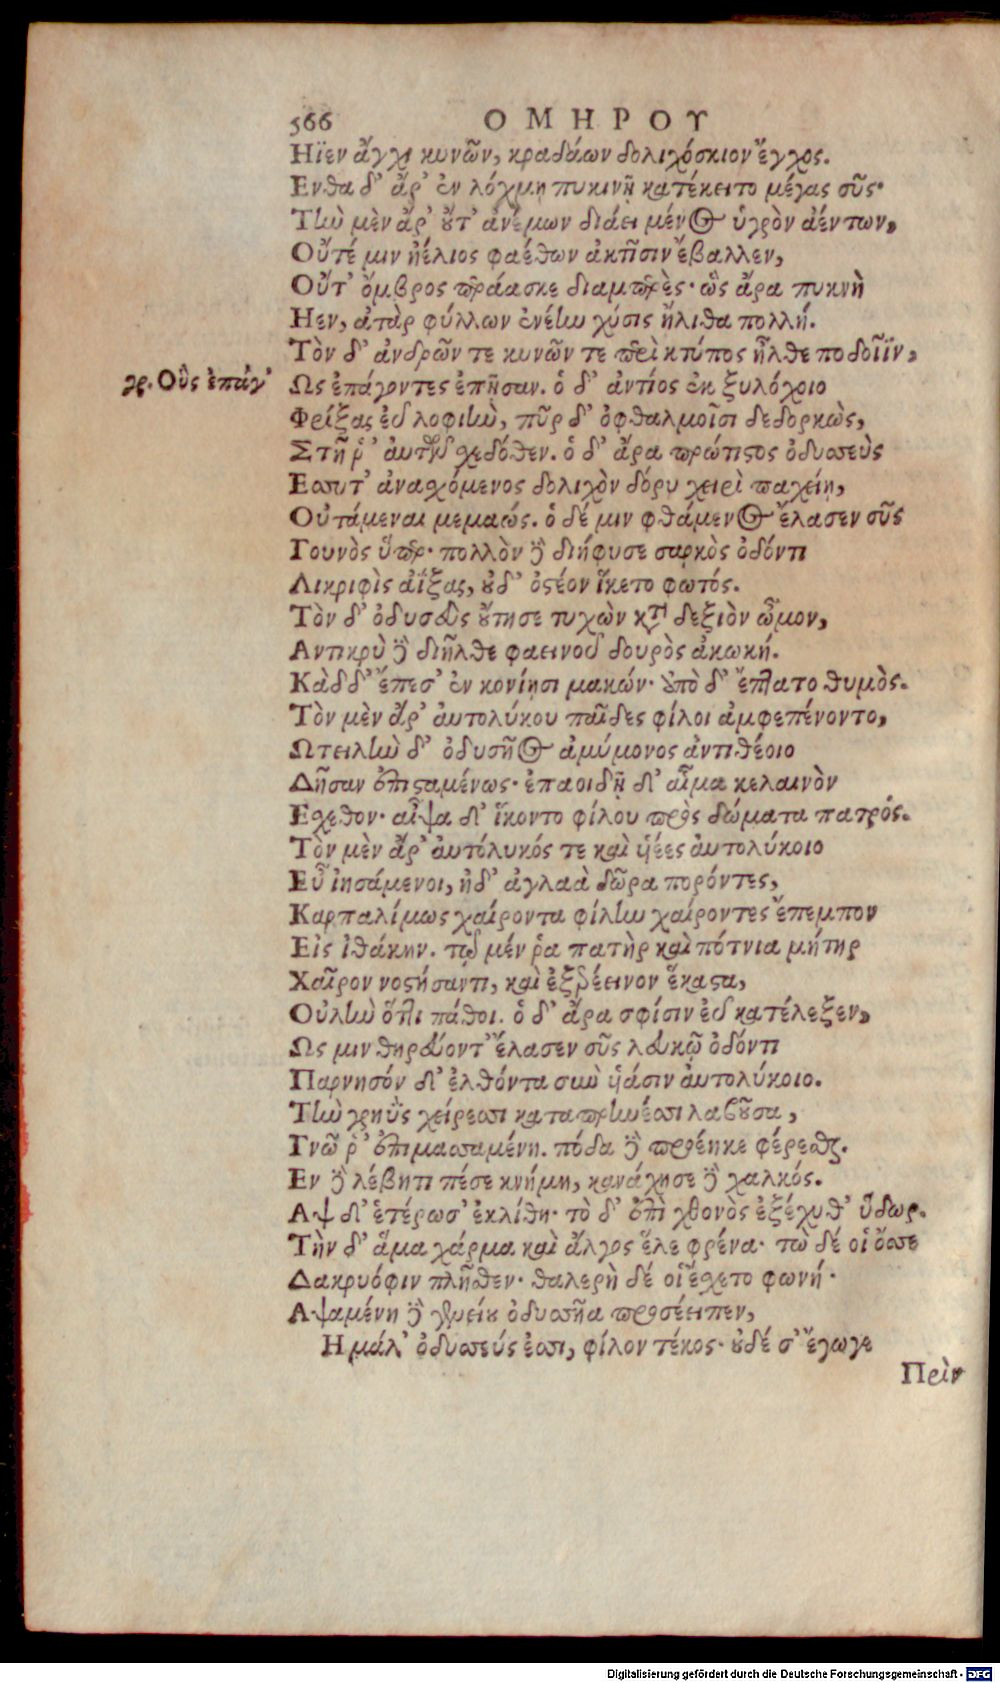 566 ΟΜΗΡΟΥ
Ηϊεν ἄγχι κυνῶν, κραδάων δολιχόσκιον ἔγχος.
Ενθα δ' ἄρ' ἐν λόχμῃ πυκινῇ κατέκειτο μέγας σῦς·
Τὴν μὲν ἄρ' οὔτ' ἀνέμων διάει μένος ὑγρὸν ἀέντων,
Οὔτέ μιν ἠέλιος φαέθων ἀκτῖσιν ἔβαλλεν,
Οὔτ' ὄμβρος περάασκε διαμπερὲς· ὣς ἄρα πυκνὴ
Ηεν, ἀτὰρ φύλλων ἐνέην χύσις ἤλιθα πολλή.
Τὸν δ' ἀνδρῶν τε κυνῶν τε περὶ κτύπος ἦλθε ποδοῖϊν,
γρ. Οὓς ἐπάγ'
Ως ἐπάγοντες ἐπῇσαν. ὁ δ' ἀντίος ἐκ ξυλόχοιο
Φρίξας εὖ λοφιὴν, πῦρ δ' ὀφθαλμοῖσι δεδορκὼς,
Στῆ ῥ' αὐτῶν σχεδόθεν. ὁ δ' ἄρα πρώτιστος ὀδυσσεὺς
Εσσυτ' ἀνασχόμενος δολιχὸν δόρυ χειρὶ παχείῃ,
Οὐτάμεναι μεμαώς. ὁ δέ μιν φθάμενος ἔλασεν σῦς
Γουνὸς ὕπερ· πολλὸν δὲ διήφυσε σαρκὸς ὀδόντι
Λικριφὶς ἀΐξας, οὐδ' ὀστέον ἵκετο φωτός.
Τὸν δ' ὀδυσεὺς οὔτησε τυχὼν κατὰ δεξιὸν ὦμον,
Αντικρὺ δὲ διῆλθε φαεινοῦ δουρὸς ἀκωκή.
Κὰδ δ' ἔπεσ' ἐν κονίῃσι μακών· ἀπὸ δ' ἔπτατο θυμὸς.
Τὸν μὲν ἄρ' αὐτολύκου παῖδες φίλοι ἀμφεπένοντο,
Ωτειλὴν δ' ὀδυσῆος ἀμύμονος ἀντιθέοιο
Δῆσαν ἐπισταμένως· ἐπαοιδῇ δ' αἷμα κελαινὸν
Εσχεθον· αἶψα δ' ἵκοντο φίλου πρὸς δώματα πατρός.
Τὸν μὲν ἄρ' αὐτόλυκός τε καὶ υἱέες αὐτολύκοιο
Εὖ ἰησάμενοι, ἠδ' ἀγλαὰ δῶρα πορόντες,
Καρπαλίμως χαίροντα φίλην χαίροντες ἔπεμπον
Εἰς ἰθάκην. τῷ μέν ῥα πατὴρ καὶ πότνια μήτηρ
Χαῖρον νοστήσαντι, καὶ ἐξερέεινον ἕκαστα,
Οὐλὴν ὅττι πάθοι. ὁ δ' ἄρα σφίσιν εὖ κατέλεξεν,
Ως μιν θηρεύοντ' ἔλασεν σῦς λευκῷ ὀδόντι
Παρνησόν δ' ἐλθόντα σὺν υἱάσιν αὐτολύκοιο.
Τὴν γρηῢς χείρεσσι καταπρηνέσσι λαβοῦσα,
Γνῶ ῥ' ἐπιμασσαμένη. πόδα δὲ προέηκε φέρεσθαι.
Εν δὲ λέβητι πέσε κνήμη, κανάχησε δὲ χαλκός.
Αψ δ' ἑτέρωσ' ἐκλίθη· τὸ δ' ἐπὶ χθονὸς ἐξέχυθ' ὕδωρ.
Τὴν δ' ἅμα χάρμα καὶ ἄλγος ἕλε φρένα· τὼ δέ οἱ ὄσσε
Δακρυόφιν πλῆσθεν· θαλερὴ δέ οἱ ἔσχετο φωνή·
Αψαμένη δὲ γενείου ὀδυσσῆα προσέειπεν,
Η μάλ' ὀδυσσεύς ἐσσι, φίλον τέκος· οὐδέ σ' ἔγωγε
Πρὶν
Digitalisierung gefördert durch die Deutsche Forschungsgemeinschaft - DFG